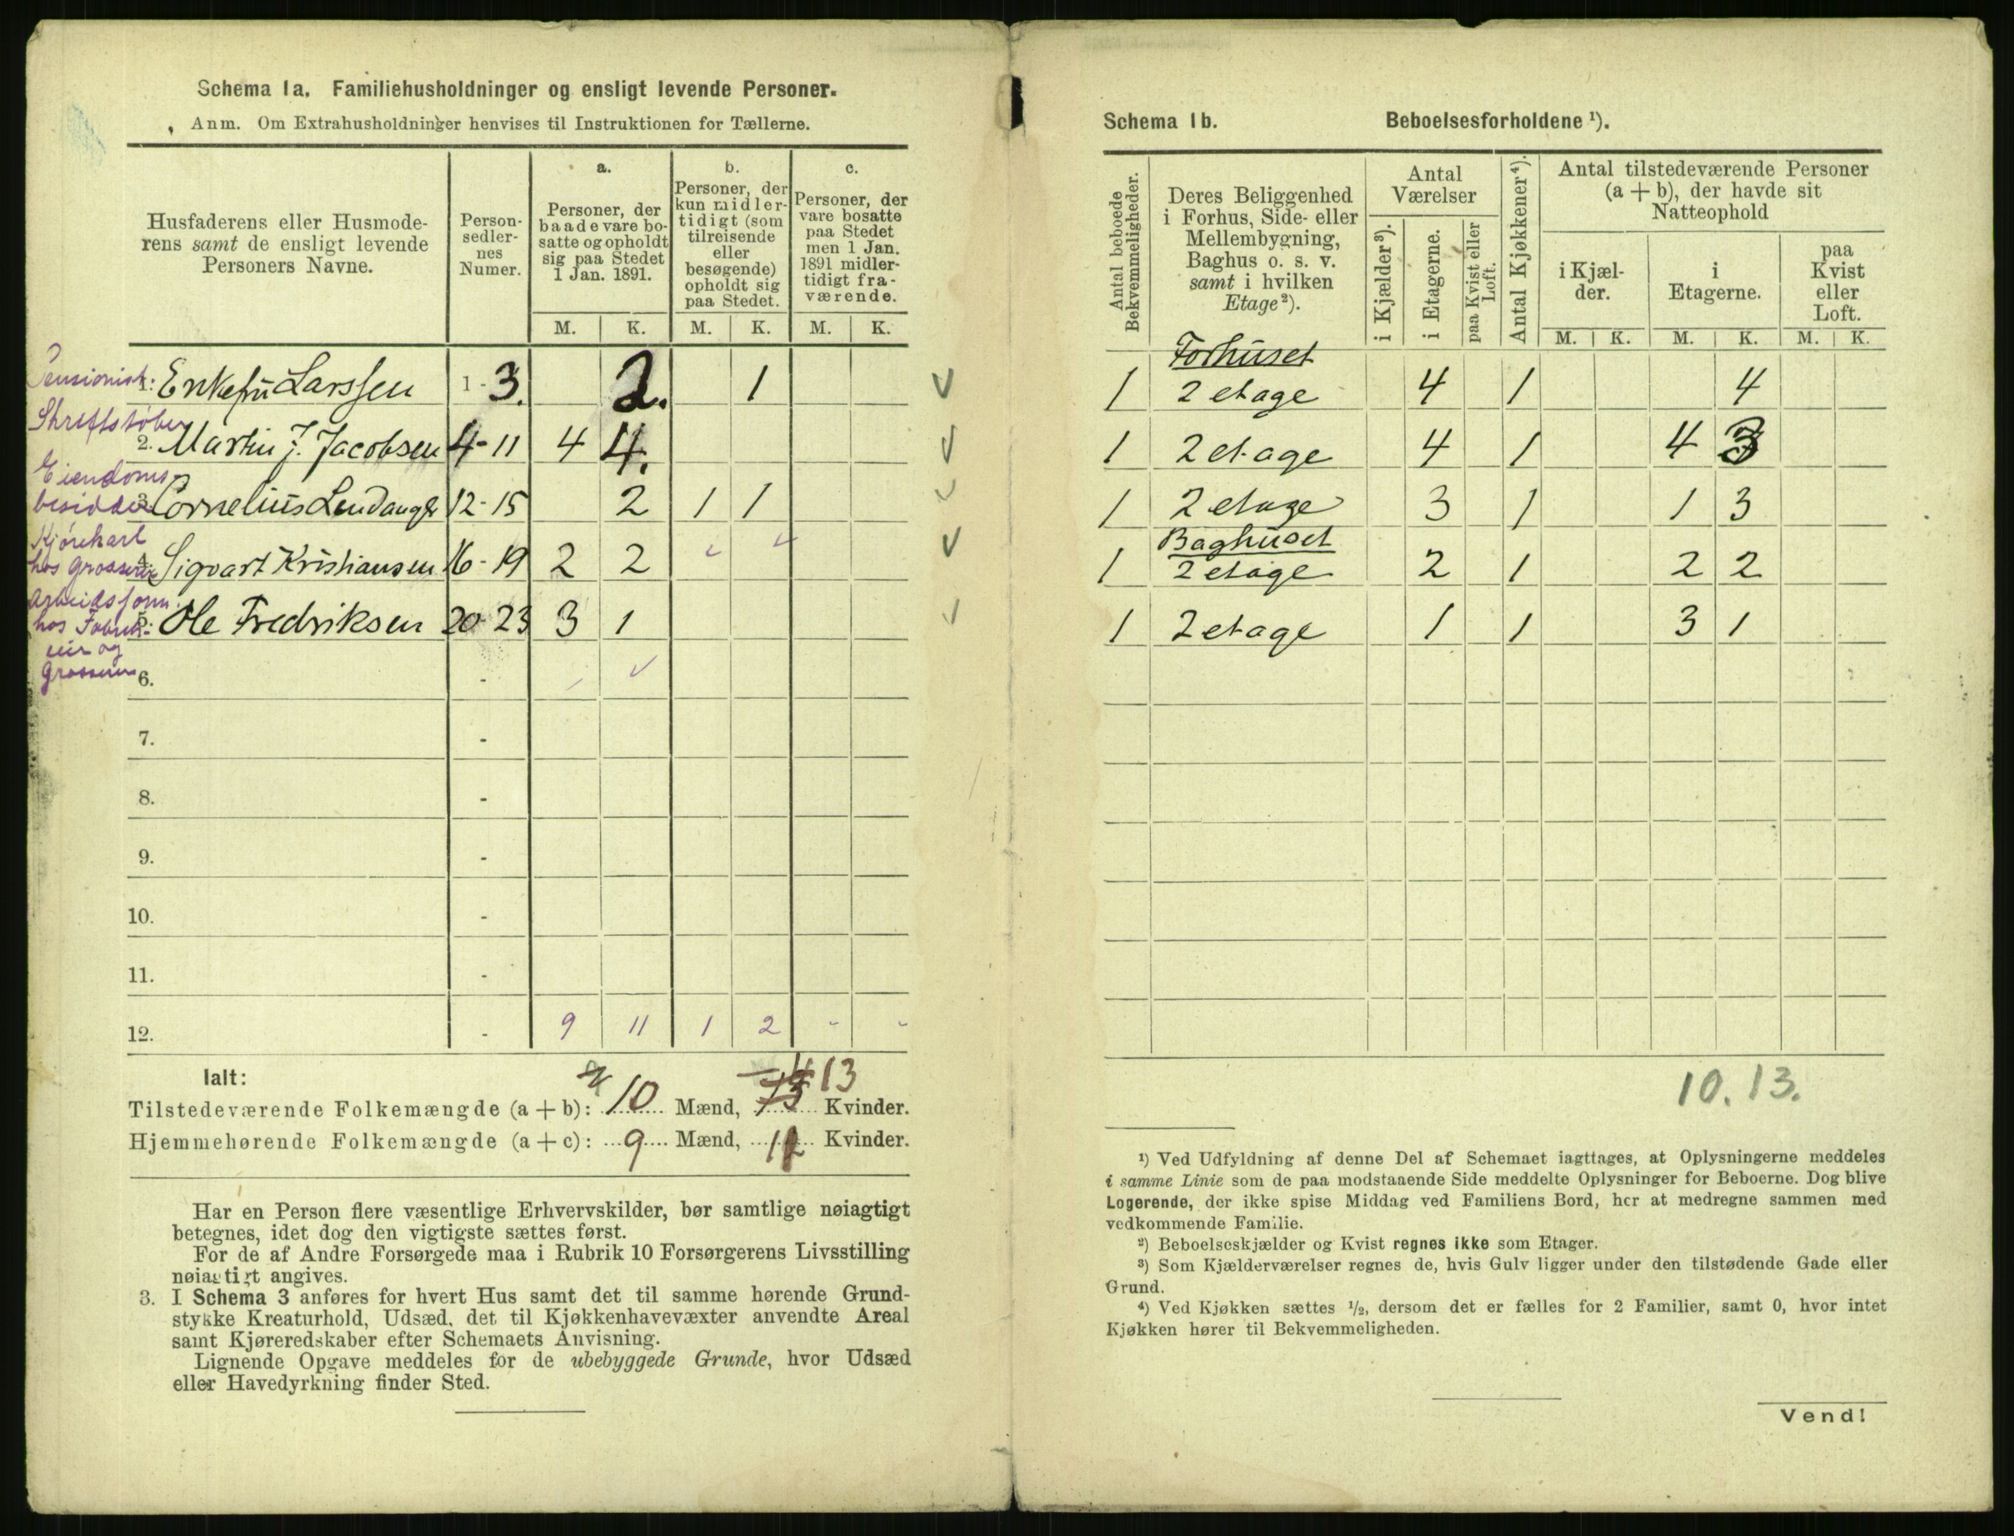 Schema 1a. Familiehusholdninger og ensligt levende Personer.
Anm. Om Extrahusholdninger henvises til Instruktionen for Tællerne.
Husfaderens eller Husmode-
rens samt de ensligt levende
Personers Navne.
Person-
sedler-
nes
Numer.
a.
Personer, der
baade vare bo-
satte og opholdt
sig paa Stedet
1 Jan. 1891.
b.
Personer, der
kun midler-
tidigt (som
tilreisende
eller
besøgende)
opholdt sig
paa Stedet.
c.
Personer, der
vare bosatte
paa Stedet
men 1 Jan.
1891 midler-
tidigt fra-
værende.
M. K. M. K. M. K.
Pensionist:
1. Enkefru Larssen 1 - 3. 2. 1
Skriftstøber
2. Martin J. Jacobsen 4 - 11 4 4.
Eiendoms
besidder
3. Cornelius Lendanger 12 - 15 2 1 1
Kjørekarl
hos Grosserer
4. Sigvart Kristiansen 16 - 19 2 2
Arbeidsform.
hos Fabrik-
eier og
Grosserer
5. Ole Fredriksen 20 - 23 3 1
6. -
7. -
8. -
9. -
10. -
11. -
12. - 9 11 1 2 - -
Ialt:
Tilstedeværende Folkemængde (a + b): 10 Mænd, 13 Kvinder.
Hjemmehørende Folkemængde (a + c): 9 Mænd, 11 Kvinder.
Har en Person flere væsentlige Erhvervskilder, bør samtlige nøiagtigt
betegnes, idet dog den vigtigste sættes først.
For de af Andre Forsørgede maa i Rubrik 10 Forsørgerens Livsstilling
nøiagtigt angives.
3. I Schema 3 anføres for hvert Hus samt det til samme hørende Grund-
stykke Kreaturhold, Udsæd, det til Kjøkkenhavevæxter anvendte Areal
samt Kjøreredskaber efter Schemaets Anvisning.
Lignende Opgave meddeles for de ubebyggede Grunde, hvor Udsæd
eller Havedyrkning finder Sted.
Schema 1b. Beboelsesforholdene ¹).
Antal beboede
Bekvemmeligheder.
Deres Beliggenhed
i Forhus, Side- eller
Mellembygning,
Baghus o. s. v.
samt i hvilken
Etage ²).
Antal
Værelser
i Kjælder ³).
i Etagerne.
paa Kvist eller
Loft.
Antal Kjøkkener ⁴).
Antal tilstedeværende Personer
(a + b), der havde sit
Natteophold
i Kjæl-
der.
i
Etagerne.
paa
Kvist
eller
Loft.
M. K. M. K. M. K.
Forhuset
1 2 etage 4 1 4
1 2 etage 4 1 4 3
1 2 etage 3 1 1 3
Baghuset
1 2 etage 2 1 2 2
1 2 etage 1 1 3 1
10. 13.
¹) Ved Udfyldning af denne Del af Schemaet iagttages, at Oplysningerne meddeles
i samme Linie som de paa modstaaende Side meddelte Oplysninger for Beboerne. Dog blive
Logerende, der ikke spise Middag ved Familiens Bord, her at medregne sammen med
vedkommende Familie.
²) Beboelseskjælder og Kvist regnes ikke som Etager.
³) Som Kjælderværelser regnes de, hvis Gulv ligger under den tilstødende Gade eller
Grund.
⁴) Ved Kjøkken sættes ½, dersom det er fælles for 2 Familier, samt 0, hvor intet
Kjøkken hører til Bekvemmeligheden.
Vend!